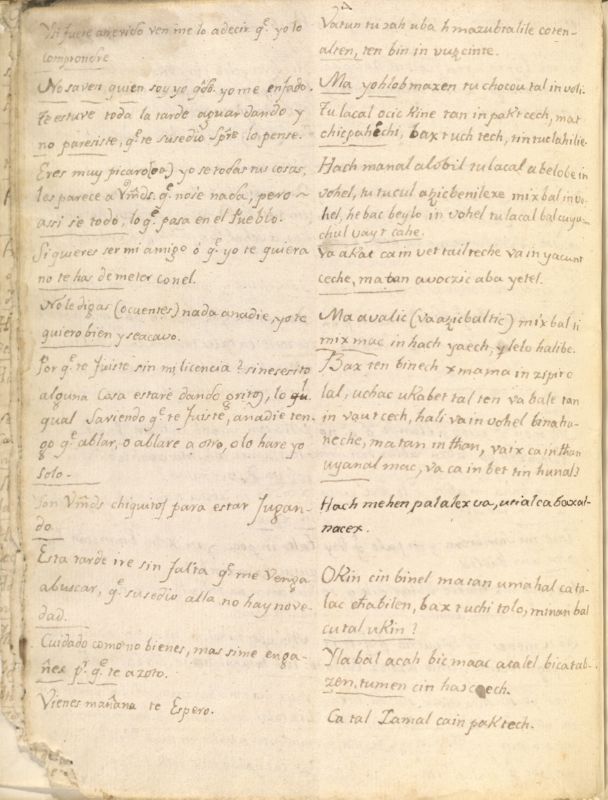 Y si fuere querido ven me lo a decir q.e yo lo
comprondre
No saven quien soy yo q.do yo me enfado.
te estuve toda la tarde aguardando y
no paresiste, q.e te susedio Spre lo pense.
Eres muy picaro(oa) yo se todas tus cosas,
les parece a Vm̃ds. q.e nose nada, pero
assi se todo, lo q.e pasa en el Pueblo.
Si quieres ser mi amigo ó q.e yo te quiera
no te has de meter con el.
No le digas (o cuentes) nada anadie, yo te
quiero bien y seacavo.
Por q.e te fuiste sin mi licencia? sinesesito
alguna Casa estaré dando gritos, lo
qual Saviendo q.e te fuiste, añadie ten-
go q.e ablar, o ablare a otro, o lo hare yo
Solo.
Son Vm̃ds chiquitos para estar Jugan-
do.
Esta tarde ire sin falta q.e me Venga
abuscar, q.e susedio alla no hay nove-
dad.
Cuidado como no bienes, mas si me enga-
ñes p.r q.e te azoto.
Vienes mañana te Espero.
Va tun tu yah uba h mazubtalile coten-
alten, ten bin in vuɔcinte.
Ma yohlob maxen tu chocou tal in voli.
Tu lacal ocic kine tan in paktcech, mat
chicpahechi, bax t uch tech, tin tuclahilie.
Hach manal a lobil tu lacal a belobe in
vohel, tu tucul aɔicbenilexe mixbal in vo-
hel, he bac beylo in vohel tu lacal bal cuyu-
chul uay t cahe.
Va a kat ca in vet tail teche va in yacunt
ceche, ma tan a voczic aba yetel.
Ma avalic (va aɔicbaltic) mixbal ti
mixmac in hach yaech, ylelo halibe.
Bax ten binech x mama in zipit o
lal, uchac u kabet tal ten va bale tan
in vaut cech, hali va in vohel binaha-
neche, ma tan in than, vaix ca in than
uyanal mac, va ca in bet tin hunal
Hach mehen palalex va, utial ca baxal-
nacex.
Okin cin binel ma tan u mahal ca ta-
lac chabilen, bax t uchi tolo, minan bal
cu tal u kin?
Yla bal a cah bic maac a talel bica tab-
zen, tumen cin haɔcech.
Ca tal Zamal ca in paktech.